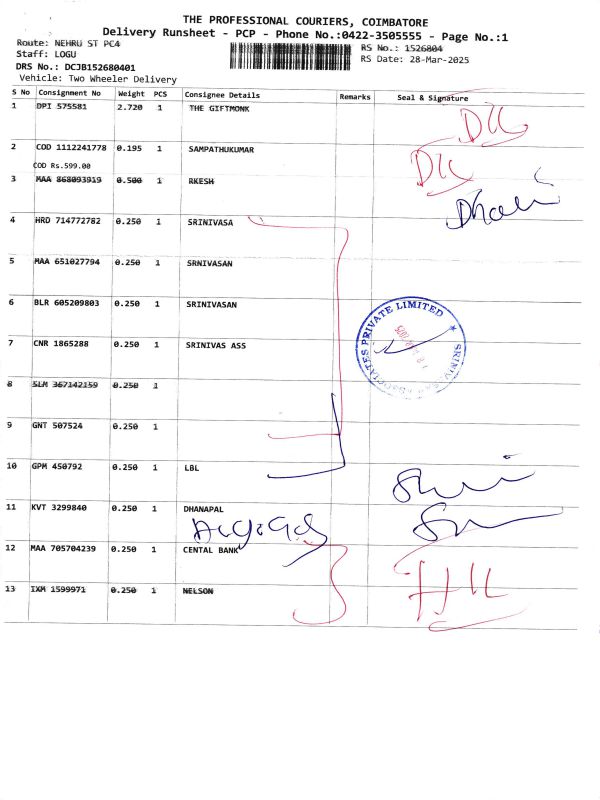 THE PROFESSIONAL COURIERS, COIMBATORE
Delivery Runsheet - PCP - Phone No.:0422-3505555 - Page No.:1
Route: NEHRU ST PC4
RS No.: 1526804
Staff: LOGU
RS Date: 28-Mar-2025
DRS No.: DCJB152680401
Vehicle: Two Wheeler Delivery
S No Consignment No Weight PCS Consignee Details Remarks Seal & Signature
1 DPI 575581 2.720 1 THE GIFTMONK
2 COD 1112241778 0.195 1 SAMPATHUKUMAR
COD Rs.599.00
3 MAA 868093919 0.500 1 RKESH
4 HRD 714772782 0.250 1 SRINIVASA
5 MAA 651027794 0.250 1 SRNIVASAN
6 BLR 605209803 0.250 1 SRINIVASAN
7 CNR 1865288 0.250 1 SRINIVAS ASS
8 SLM 367142159 0.250 1
9 GNT 507524 0.250 1
10 GPM 450792 0.250 1 LBL
11 KVT 3299840 0.250 1 DHANAPAL
12 MAA 705704239 0.250 1 CENTAL BANK
13 IXM 1599971 0.250 1 NELSON
PRIVATE LIMITED